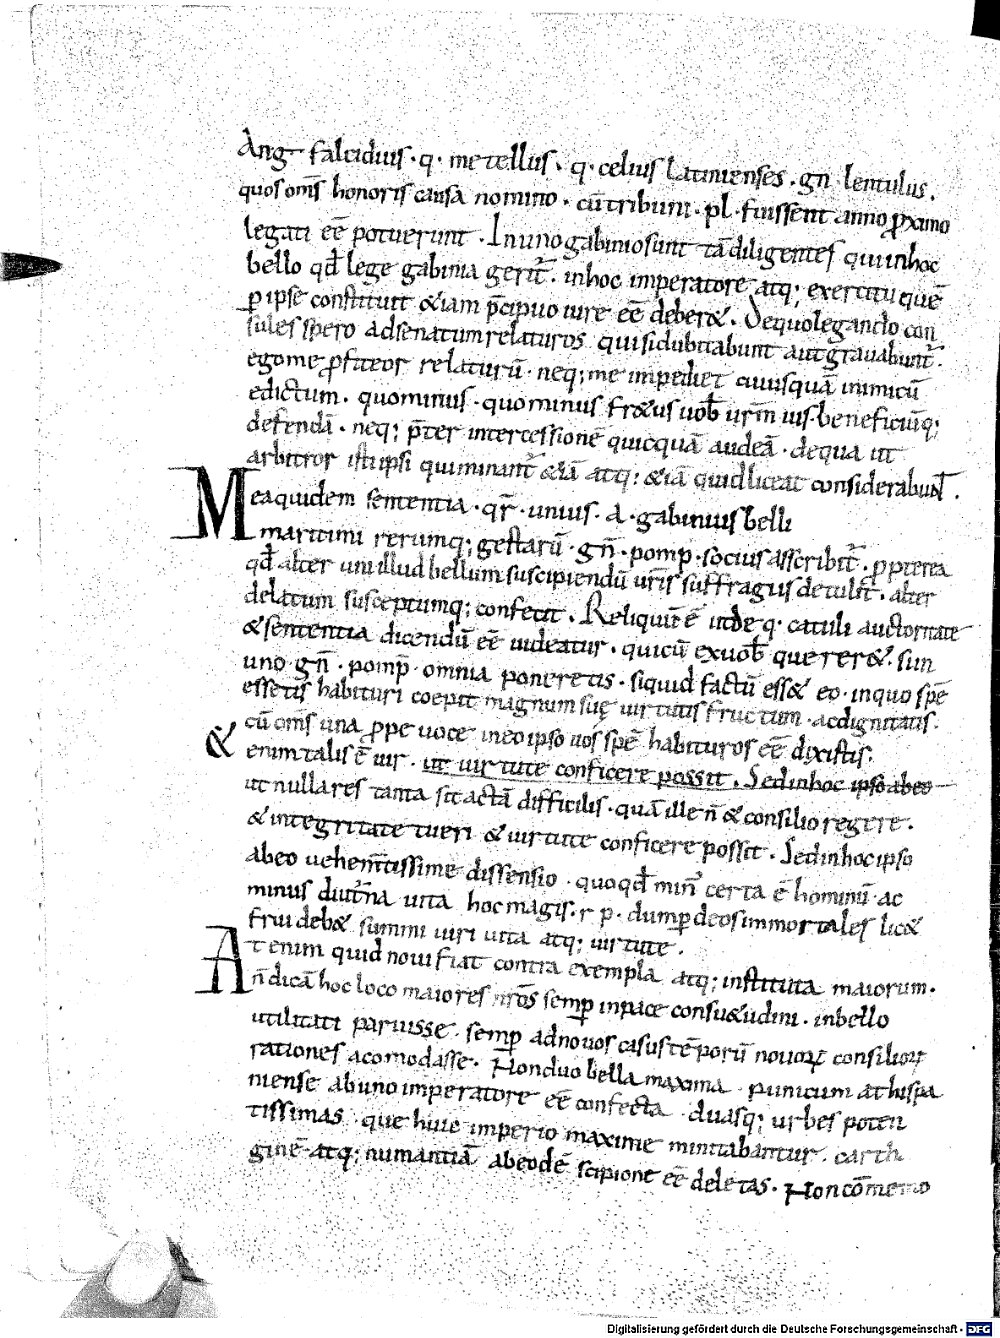 Ang falcidius · q · metellus · q · celius Latinienses · gn lentulus .
quos om̅s honoris causa nomino · cu̅ tribuni · pl · fuissent anno proximo
legati ee̅ potuerunt · In uno gabinio sunt ta̅ diligentes qui inhoc
bello qd̅ lege gabinia gerit̅ · inhoc imperatore atq; exercitu que̅
p ipse constituit &iam p̅cipuo iure ee̅ deber& · Dequo legando con
sules spero adsenatum relaturos qui si dubitabunt aut grauabunt̅ ·
egome profiteor relaturu̅ · neq; me impediet cuiusqua̅ inimicu̅
edictum · quominus · quominus fr&us uob̅ ur̅m ius · beneficiu̅q;
defenda̅ · neq; p̅ter intercessione̅ quicqua̅ audea̅ · dequa ut
arbitror isti ipsi qui minant̅ &ia̅ atq; &ia̅ quid liceat considerabunt ·
Mea quidem sententia · qr̅ · unius · A · gabinius belli
maritimi rerumq; gestaru̅ · gn̅ · pomp · socius asscribit̅ · propterea
qd̅ alter uni illud bellum suscipiendu̅ ur̅is suffragiis detulit · alter
delatum susceptumq; confecit · Reliquu̅ e̅ ut de q · catuli auctoritate
&sententia dicendu̅ ee̅ uideatur · qui cu̅ exuob̅ querer& · si in
uno · gn̅ · pomp̅ · omnia poneretis · siquid factu̅ ess& eo · in quo spe̅
essetis habituri coepit magnum suę uirtutis fructum · ac dignitatis ·
cu̅ om̅s una prope uoce ineo ipso uos spe̅ habituros ee̅ dixistis ;
& enim talis e̅ uir · ut uirtute conficere possit · Sed inhoc ipso abeo
ut nulla res tanta sit acta̅ difficilis · qua̅ ille n̅ & consilio regere ·
& integritate tueri & uirtute conficere possit · Sed inhoc ipso
abeo uehem̅tissime dissensio · quo qd̅ min' certa e̅ hominu̅ · ac
minus diut̅na uita hoc magis · r p · dump deos immortales lic&
frui deb& summi uiri uita atq; uirtute ·
At enim quid noui fiat contra exempla atq; instituta maiorum ·
n̅ dica̅ hoc loco maiores nr̅os semp inpace consu&udini · inbello
utilitati paruisse · semp ad nouos casus te̅poru̅ nouoꝝ consilioꝝ
rationes acomodasse · Non duo bella maxima · punicum at hispa
niense ab uno imperatore ee̅ confecta · duasq; urbes poten
tissimas · que huic imperio maxime minitabantur · carth
gine̅ · atq; numantia̅ abeode̅ scipione ee̅ deletas · Non co̅memo
Digitalisierung gefördert durch die Deutsche Forschungsgemeinschaft - DFG